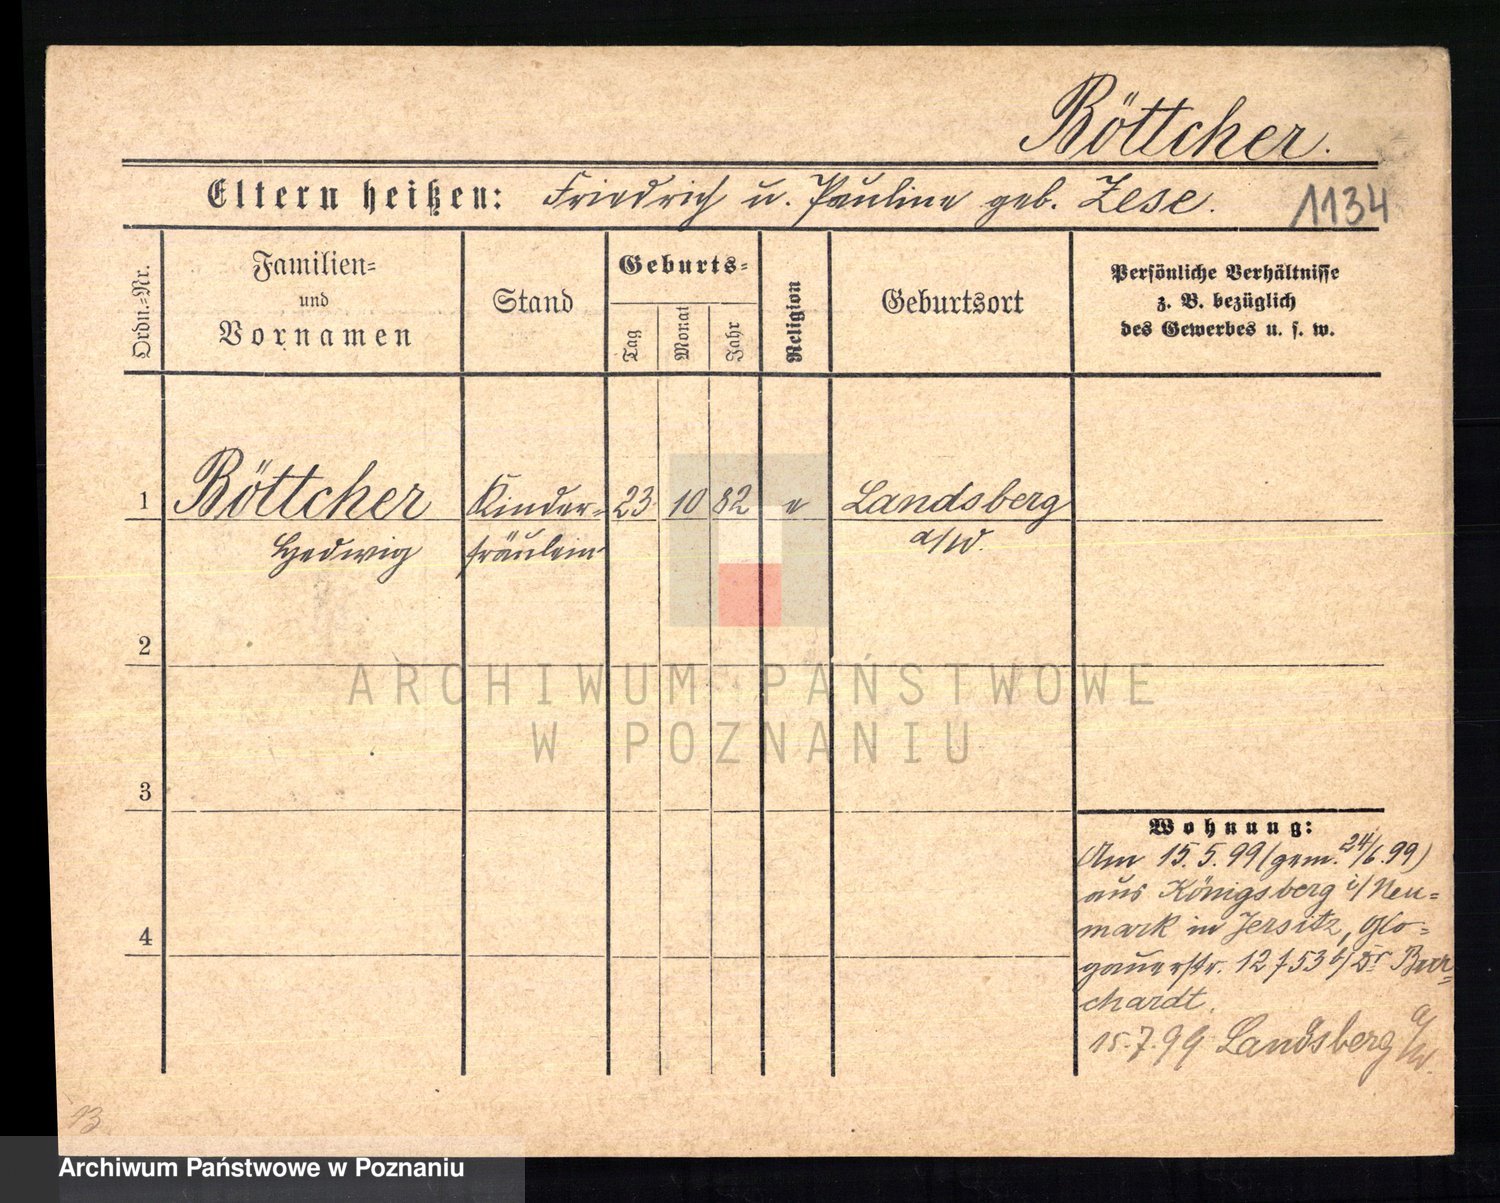 Böttcher.
Eltern heißen: Friedrich u. Pauline geb. Zese.
1134
Ordn.-Nr.
Familien-
und
Vornamen
Stand
Geburts-
Tag
Monat
Jahr
Religion
Geburtsort
Persönliche Verhältnisse
z. B. bezüglich
des Gewerbes u. s. w.
1 Böttcher Kinder- 23 10 82 e Landsberg
Hedwig fräulein a/W.
2
3
4
Wohnung:
Am 15.5.99 (gem. 24/6.99)
aus Königsberg i/Neu-
mark in Jersitz, Glo-
gauerstr. 12 753 b/Dr Bur-
chardt.
15.7.99 Landsberg a/W.
13
ARCHIWUM PAŃSTWOWE
W POZNANIU
Archiwum Państwowe w Poznaniu